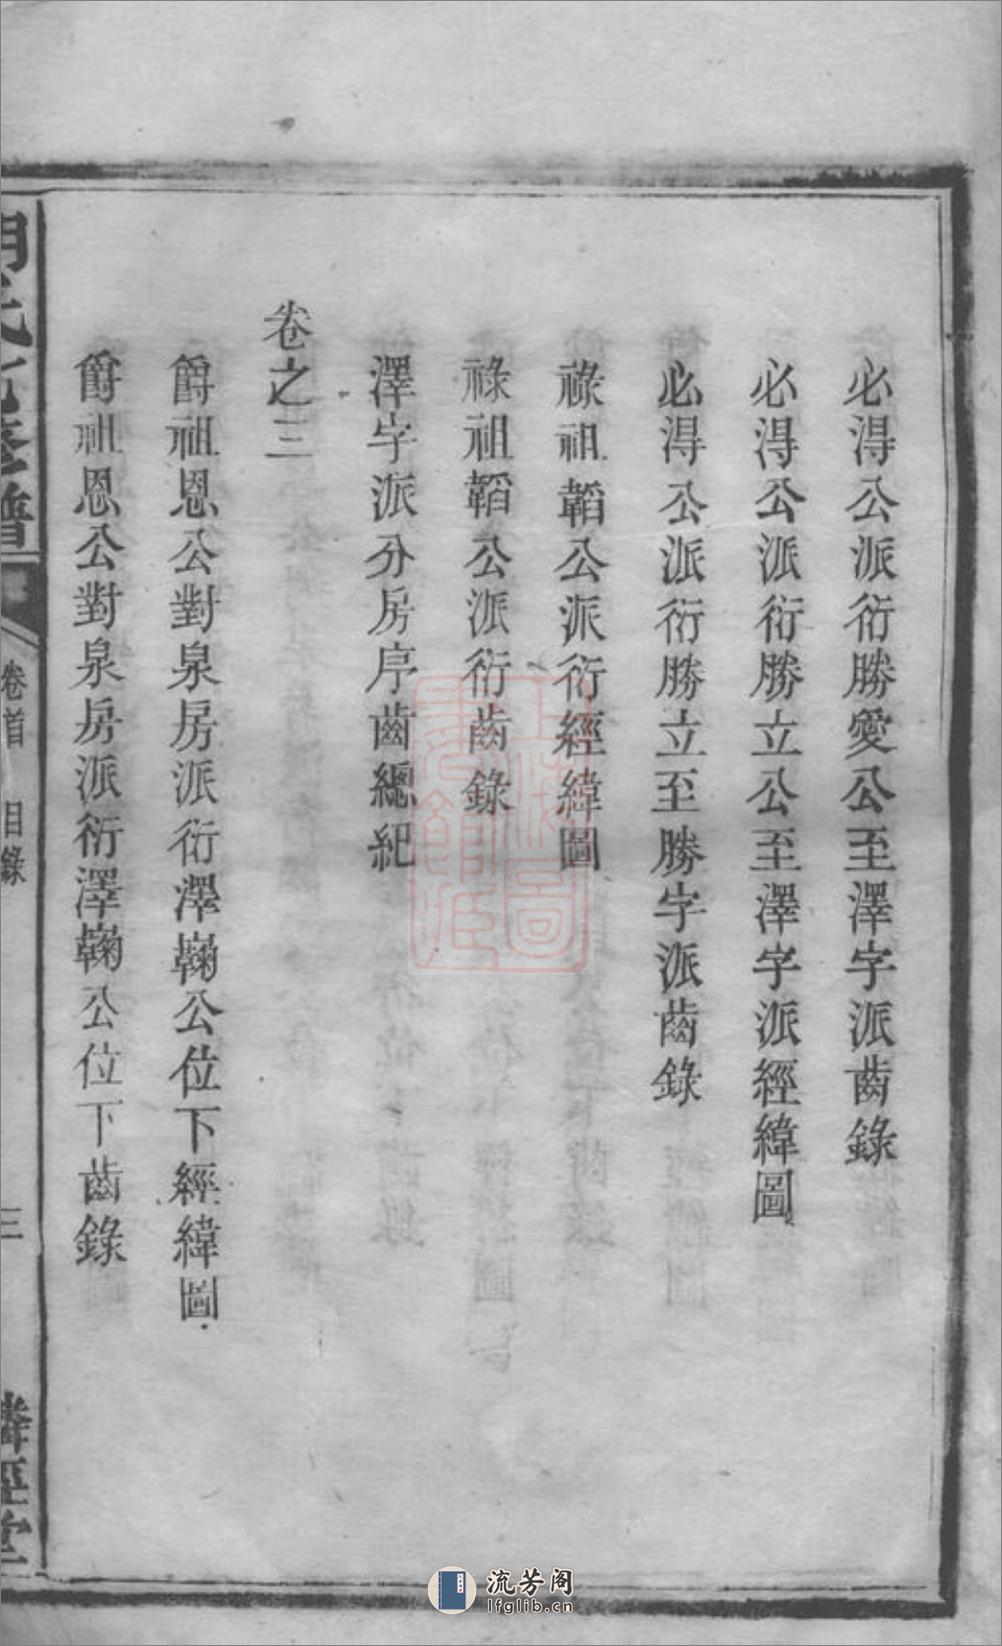 必得公派衍勝愛公至澤字派齒錄
必得公派衍勝立公至澤字派經緯圖
必得公派衍勝立至勝字派齒錄
祿祖韜公派衍經緯圖
祿祖韜公派衍齒錄
澤字派分房序齒總紀
卷之三
爵祖恩公對泉房派衍澤鞠公位下經緯圖
爵祖恩公對泉房派衍澤鞠公位下齒錄
氏
修譜
卷首 目錄
三
堂
上海圖書館藏
流芳阁
lfglib.cn